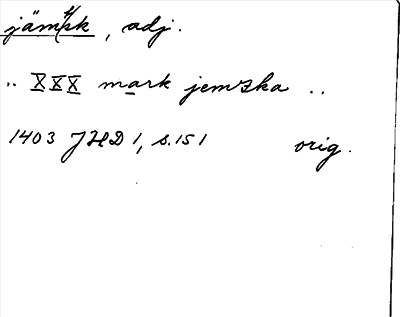 jämpk, adj.
.. XXX mark jemska ..
1403 JHD 1, s. 151 orig.